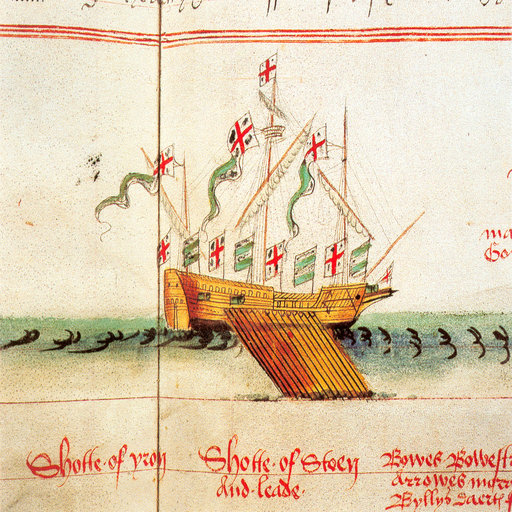 Shotte of yron
Shotte of Stoen
And leade
Bowes Bowestr
Arrowes morr
Byllys Daert f
ma
Go